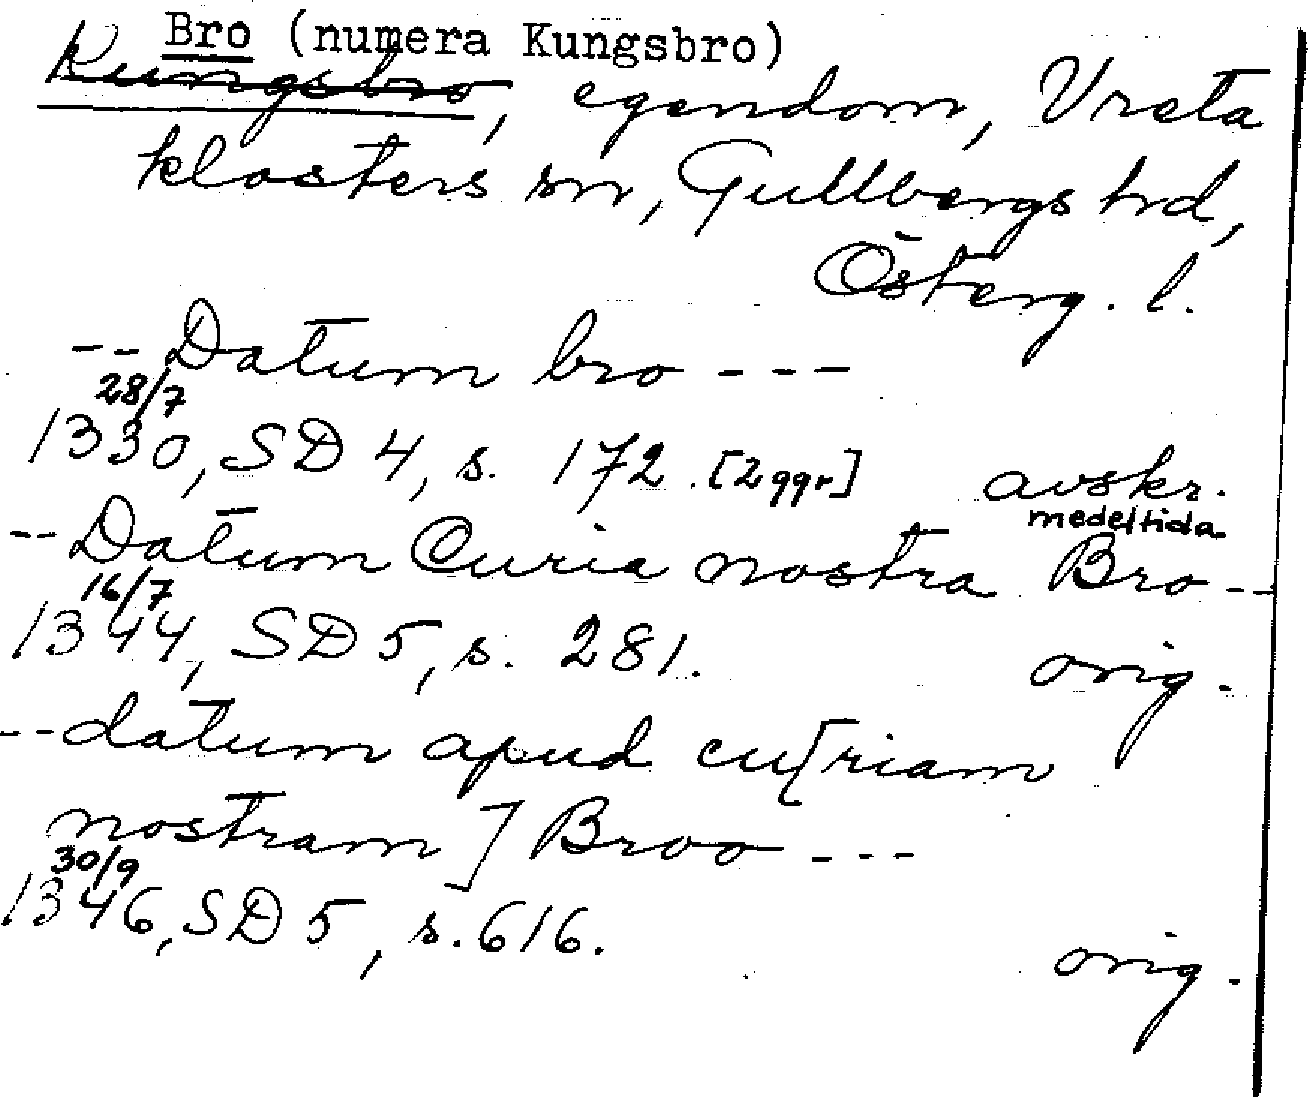 Bro (numera Kungsbro)
Kungsbro, egendom, Vreta
klosters sn, Gullbergs hrd,
Österg. l.
-- Datum bro ---
28/7
1330, SD 4, s. 172. [2 ggr] avskr.
medeltida
-- Datum Curia nostra Bro --
16/7
1344, SD 5, s. 281. orig.
-- datum apud cu[riam
nostram] Broo ---
30/9
1346, SD 5, s. 616.
orig.